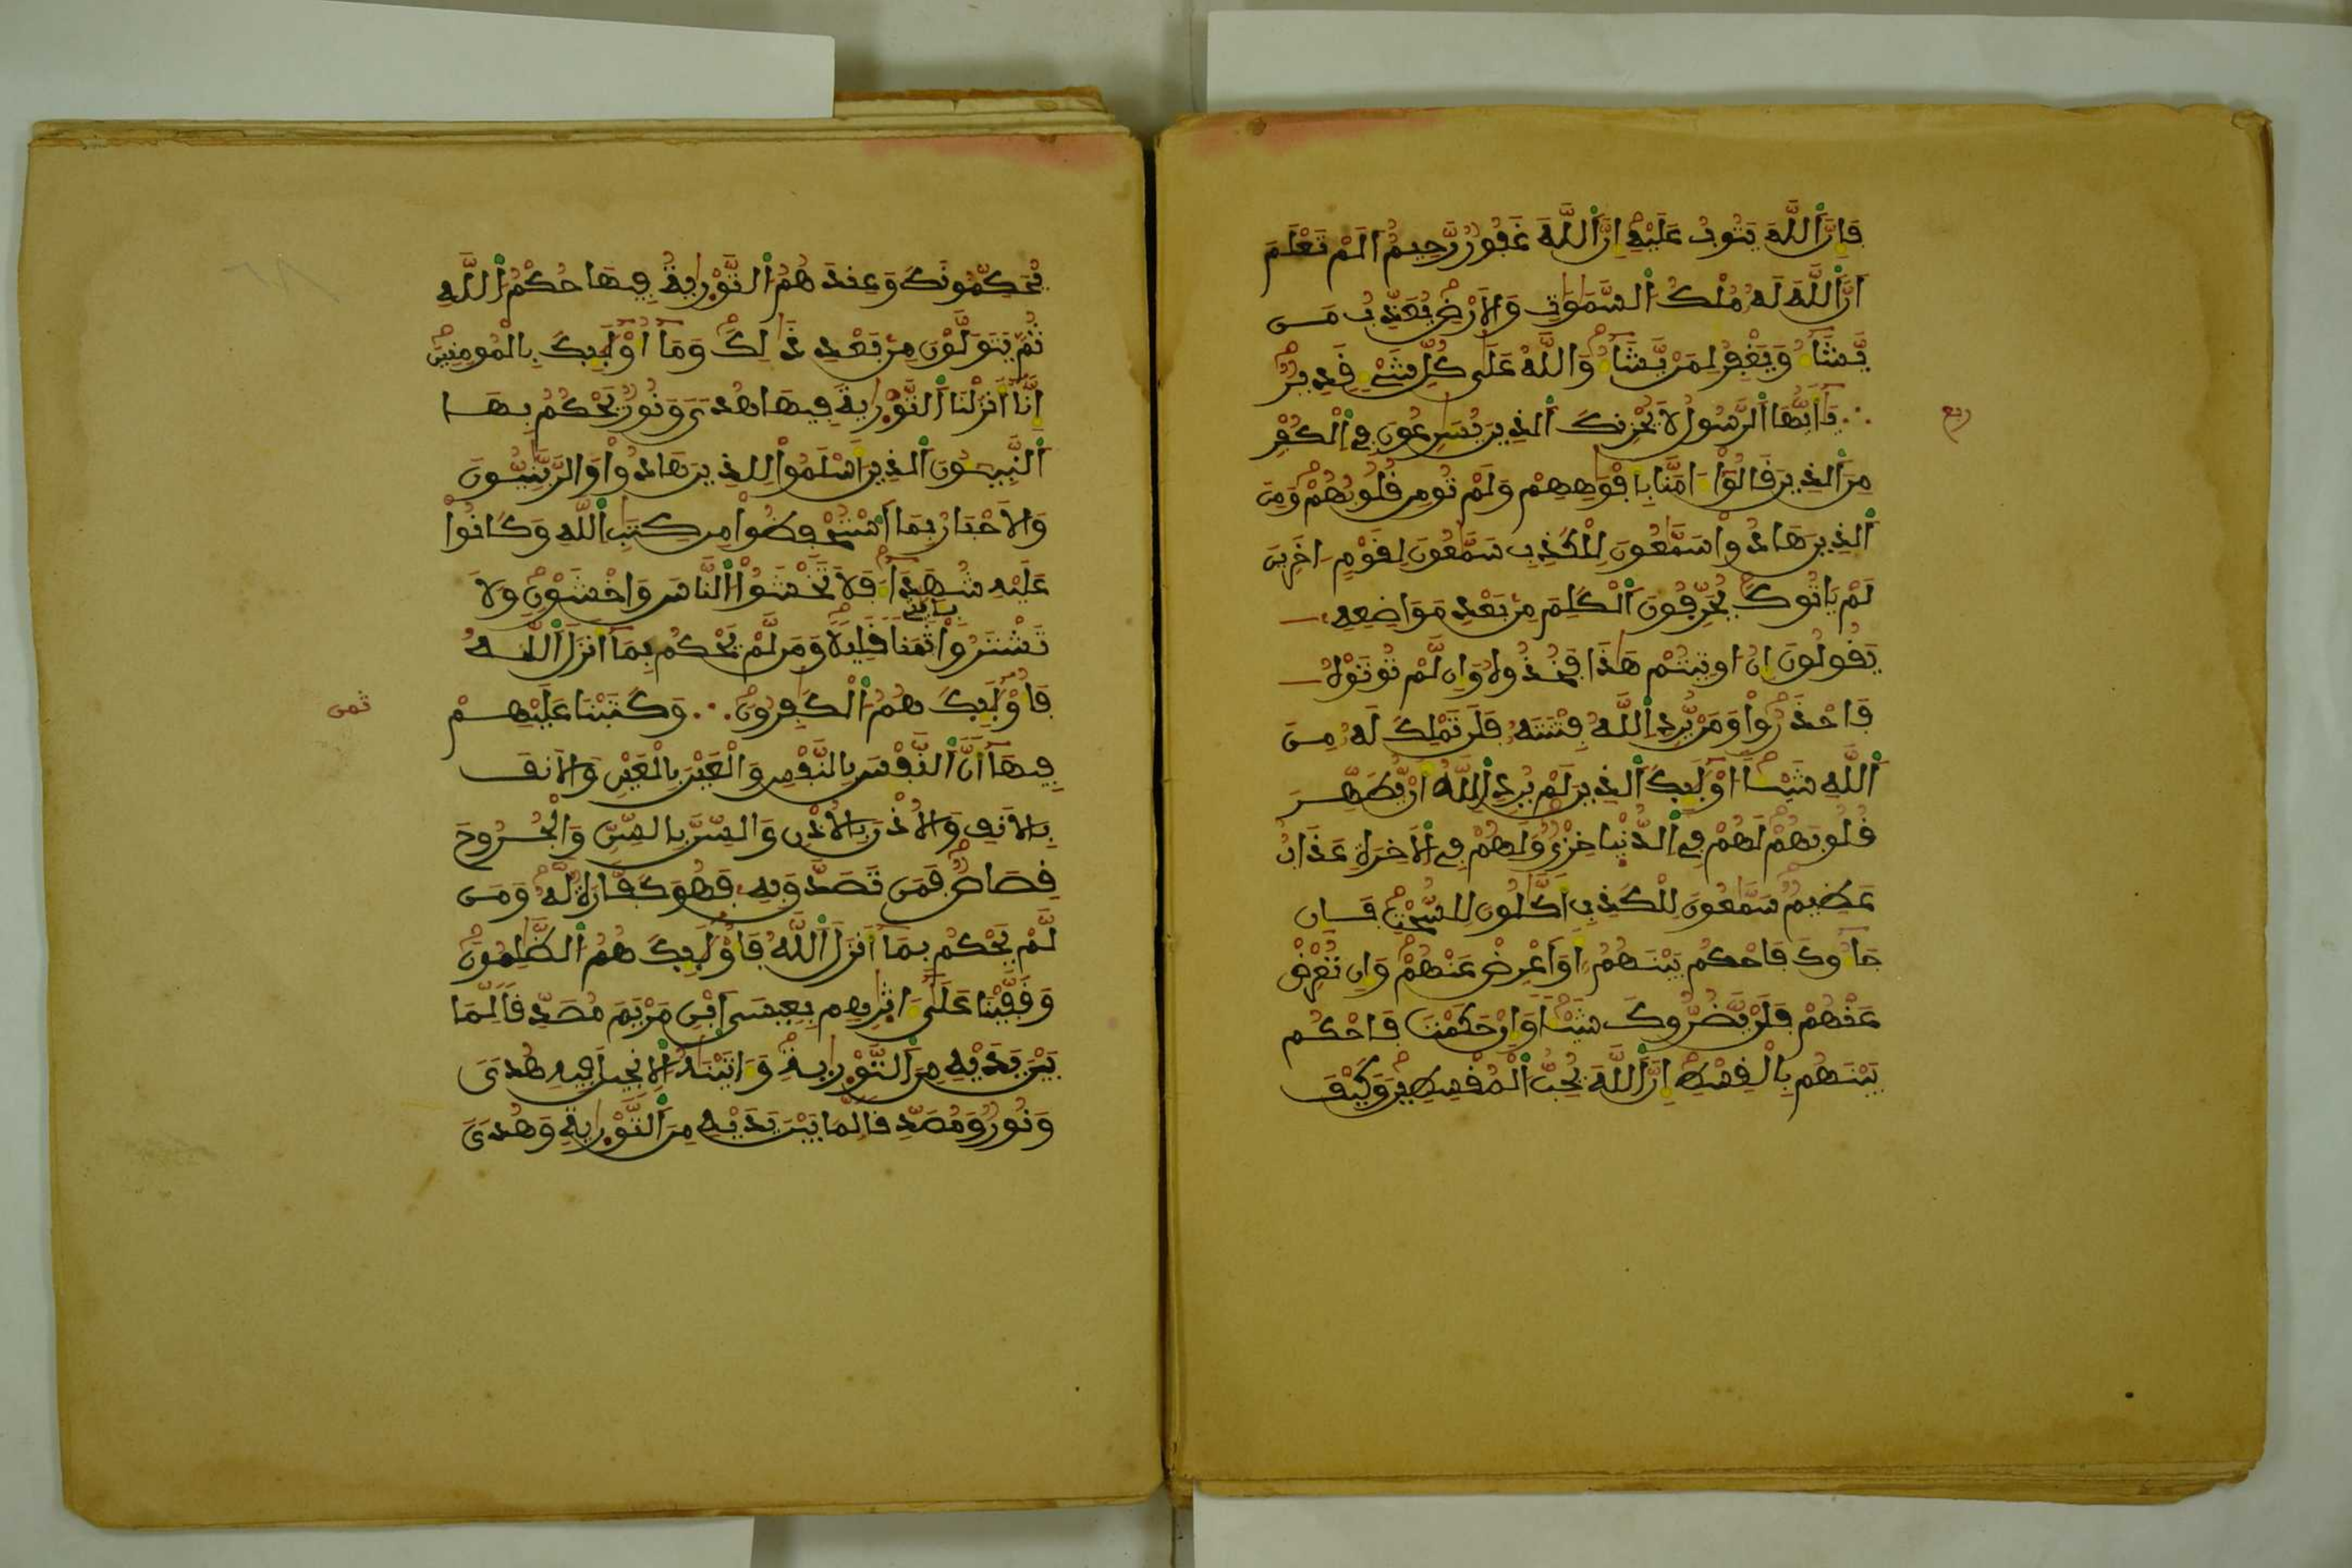 فَإِنَّ ٱللَّهَ يَتُوبُ عَلَيْهِ إِنَّ ٱللَّهَ غَفُورٌ رَّحِيمٌ اَلَمْ تَعْلَمَ
اَنَّ ٱللَّهَ لَهُ مُلْكُ ٱلسَّمَٰوَٰتِ وَالَارْضِ يُعَذِّبُ مَن
يَّشَآءُ وَيَغْفِرُ لِمَنْ يَّشَآءُ وَاللَّهُ عَلَىٰ كُلِّ شَيْءٍ قَدِيرٌ
يَٰٓأَيُّهَا ٱلرَّسُولُ لَا يُحْزِنكَ ٱلذِينَ يُسَٰرِعُونَ فِي ٱلْكُفْرِ
ربع
مِنَ ٱلذِينَ قَالُوٓاْ ءَامَنَّا بِأَفْوَٰهِهِمْ وَلَمْ تُومِن قُلُوبُهُمْ وَمِنَ
ٱلذِينَ هَادُواْ سَمَّٰعُونَ لِلْكَذِبِ سَمَّٰعُونَ لِقَوْمٍ ـ اخَرِينَ
لَمْ يَاتُوكَ يُحَرِّفُونَ ٱلْكَلِمَ مِنۢ بَعْدِ مَوَاضِعِهِ
يَقُولُونَ إِنُ اوتِيتُمْ هَٰذَا فَخُذُوهُ وَإِن لَّمْ تُوتَوْهُ
فَاحْذَرُواْ وَمَنْ يُّرِدِ ٱللَّهُ فِتْنَتَهُ فَلَن تَمْلِكَ لَهُ مِنَ
ٱللَّهِ شَيْـًٔا اوْلَٰٓئِكَ ٱلذِينَ لَمْ يُرِدِ ٱللَّهُ أَنْ يُّطَهِّرَ
قُلُوبَهُمْ لَهُمْ فِي ٱلدُّنْيَا خِزْيٌ وَلَهُمْ فِي ٱلَاخِرَةِ عَذَابٌ
عَظِيمٌ سَمَّٰعُونَ لِلْكَذِبِ أَكَّٰلُونَ لِلسُّحْتِ فَإِن
جَآءُوكَ فَاحْكُم بَيْنَهُمُ أَوَ اَعْرِضْ عَنْهُمْ وَإِن تُعْرِضْ
عَنْهُمْ فَلَنْ يَّضُرُّوكَ شَيْـًٔا وَإِنْ حَكَمْتَ فَاحْكُم
بَيْنَهُم بِالْقِسْطِ إِنَّ ٱللَّهَ يُحِبُّ ٱلْمُقْسِطِينَ وَكَيْفَ
يُحَكِّمُونَكَ وَعِندَهُمُ ٱلتَّوْرَىٰةُ فِيهَا حُكْمُ ٱللَّهِ
ثُمَّ يَتَوَلَّوْنَ مِنۢ بَعْدِ ذَٰلِكَ وَمَآ أُوْلَٰٓئِكَ بِالْمُومِنِينَ
إِنَّآ أَنزَلْنَا ٱلتَّوْرَىٰةَ فِيهَا هُدىً وَنُورٌ يَحْكُمُ بِهَا
ٱلنَّبِيـُٔونَ ٱلذِينَ أَسْلَمُواْ لِلذِينَ هَادُواْ وَالرَّبَّٰنِيُّونَ
وَالَاحْبَارُ بِمَا ٱسْتُحْفِظُواْ مِن كِتَٰبِ ٱللَّهِ وَكَانُواْ
عَلَيْهِ شُهَدَآءَ فَلَا تَخْشَوُاْ ٱلنَّاسَ وَاخْشَوْنِ وَلَا
تَشْتَرُواْ بِـَٔايَٰتِي ثَمَناً قَلِيلاً وَمَن لَّمْ يَحْكُم بِمَآ أَنزَلَ ٱللَّهُ
فَأُوْلَٰٓئِكَ هُمُ ٱلْكَٰفِرُونَ وَكَتَبْنَا عَلَيْهِمْ
ثمن
فِيهَآ أَنَّ ٱلنَّفْسَ بِالنَّفْسِ وَالْعَيْنَ بِالْعَيْنِ وَالَانفَ
بِالَانفِ وَالُاذْنَ بِالُاذْنِ وَالسِّنَّ بِالسِّنِّ وَالْجُرُوحَ
قِصَاصٌ فَمَن تَصَدَّقَ بِهِ فَهُوَ كَفَّارَةٌ لَّهُ وَمَن
لَّمْ يَحْكُم بِمَآ أَنزَلَ ٱللَّهُ فَأُوْلَٰٓئِكَ هُمُ ٱلظَّٰلِمُونَ
وَقَفَّيْنَا عَلَىٰٓ ءَاثَٰرِهِم بِعِيسَى ٱبْنِ مَرْيَمَ مُصَدِّقاً لِّمَا
بَيْنَ يَدَيْهِ مِنَ ٱلتَّوْرَىٰةِ وَءَاتَيْنَٰهُ ٱلِانجِيلَ فِيهِ هُدىً
وَنُورٌ وَمُصَدِّقاً لِّمَا بَيْنَ يَدَيْهِ مِنَ ٱلتَّوْرَىٰةِ وَهُدىً